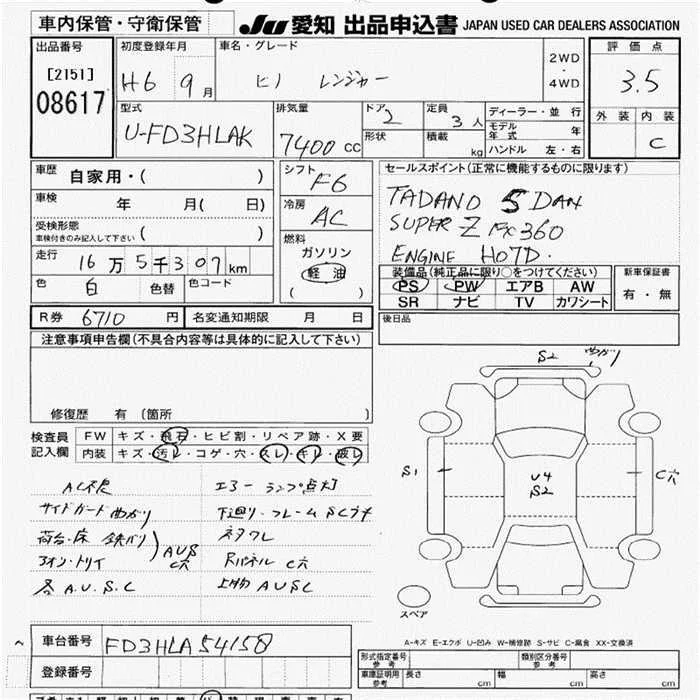 車内保管・守衛保管
JU 愛知 出品申込書 JAPAN USED CAR DEALERS ASSOCIATION
出品番号
[2151]
08617
初度登録年月
H6 9月
車名・グレード
ヒノ レンジャー
2WD
・
4WD
評価点
3.5
外装 内装
C
型式
U-FD3HLAK
排気量
7400 CC
ドア
2
形状
定員
3人
積載
kg
ディーラー・並行
モデル年式 年
ハンドル 左・右
車歴
自家用・( )
車検
年 月( 日)
受検形態
車検付きのみ記入して下さい ( )
走行
16万5千307km
色 白 色替 色コード
シフト
F6
冷房
AC
燃料
ガソリン
軽油
( )
セールスポイント(正常に機能するものに限ります)
TADANO 5 DAN
SUPER Z FX360
ENGINE HO7D.
装備品(純正品に限り○をつけてください)
PS PW エアB AW
SR ナビ TV カワシート
新車保証書
有・無
R券 6710 円
名変通知期限 月 日
後日品
注意事項申告欄(不具合内容等は具体的に記入して下さい)
修復歴 有 (箇所 )
検査員記入欄
FW キズ・飛石・ヒビ割・リペア跡・X要
内装 キズ・汚レ・コゲ・穴・スレ・キレ・破レ
AC不良
サイドガード曲がり
荷台・床 鉄バリ
アオリ・トリイ
AUS
C穴
各 A.U.S.C
エラーランプ点灯
下廻り・フレーム SCプチ
ネタワレ
Rパネル C穴
上物 AUSC
S2 曲がり
S1
U4
S2
C穴
スペア
A-キズ E-エクボ U-凹み W-補修跡 S-サビ C-腐食 XX-交換済
車台番号
FD3HLA54158
登録番号
形式指定番号
参考
類別区分番号
参考
車庫証明用
参考
長さ cm
幅 cm
高さ cm